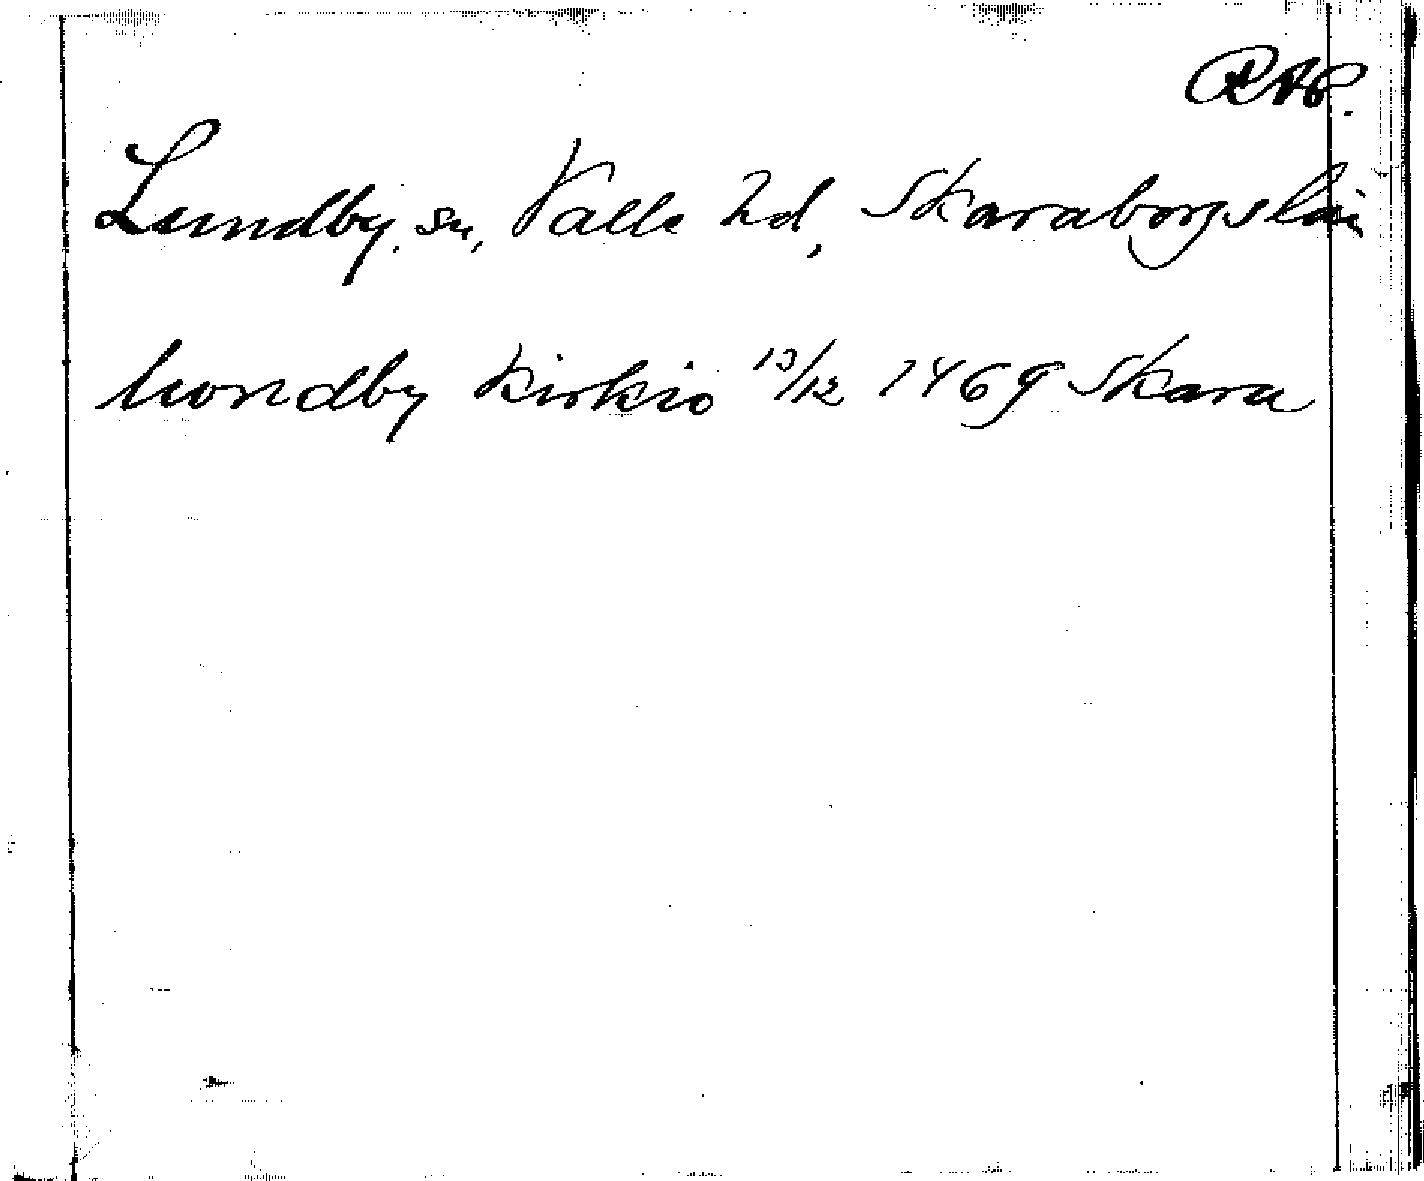 RAP.
Lundby, sn, Valle hd, Skaraborgs län
lwndby kirkio 13/12 1469 Skara